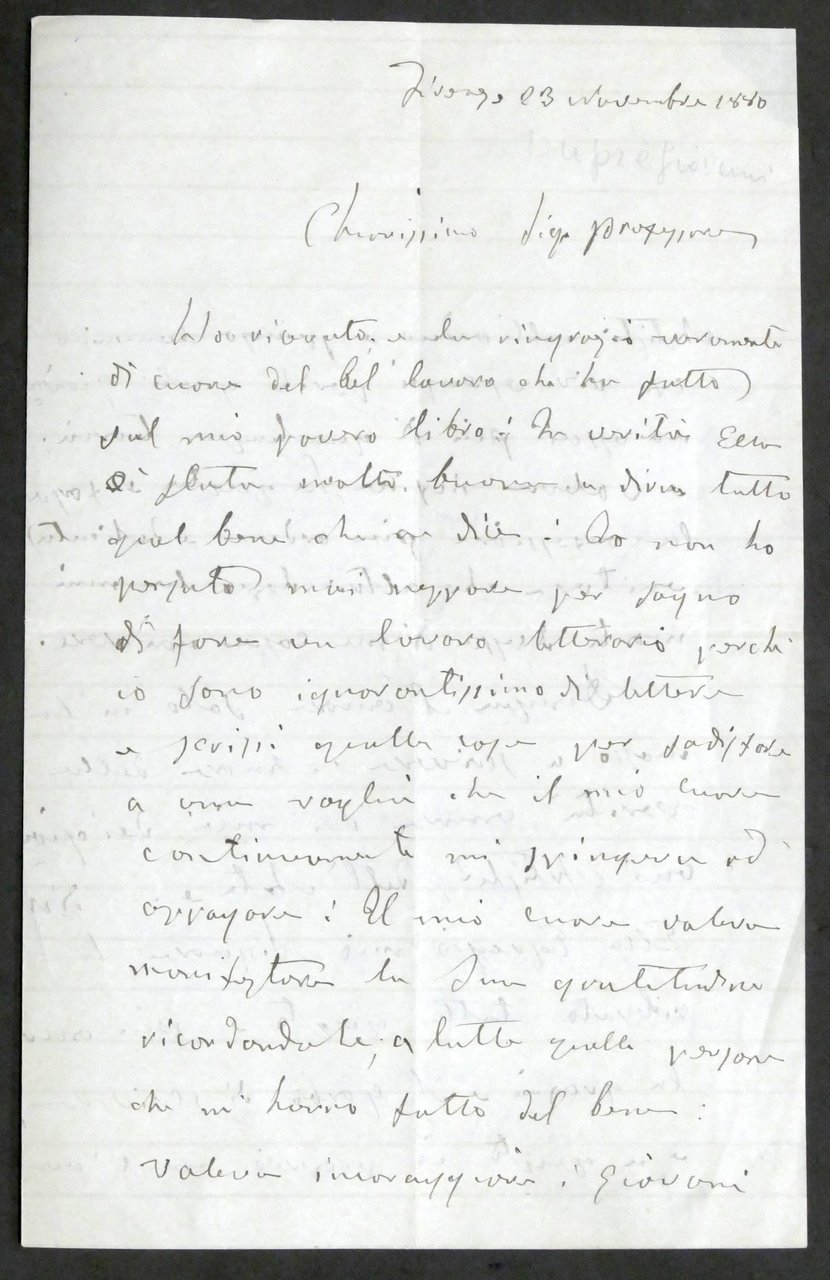 Firenze 23 Novembre 1880
Dupré Giovanni
Chiarissimo Sigr Professore
Ho ricevuto, e la ringrazio veramente
di cuore del bel lavoro che ha fatto
sul mio povero libro: In verità Ella
è stata molto buona a dirne tutto
quel bene che ne dice: Io non ho
pensato mai neppure per sogno
di fare un lavoro letterario perchè
io sono ignorantissimo di lettere
e scrissi quelle cose per sadisfare
a una voglia che il mio cuore
continuamente mi spingeva ad
appagare: Il mio cuore voleva
manifestare la sua gratitudine
ricordandole, a tutte quelle persone
che m'hanno fatto del bene:
Voleva incoraggiare i Giovani